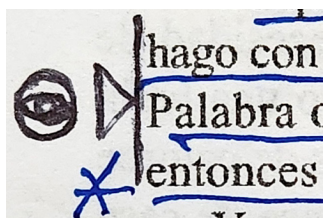 hago con
Palabra
entonces